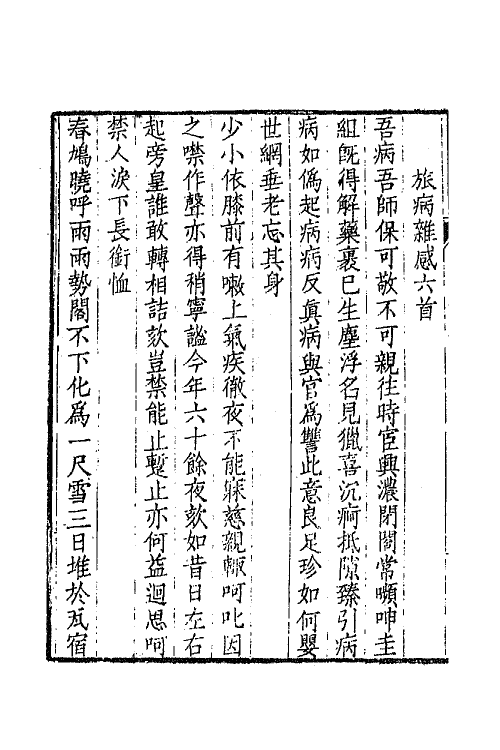 旅病雜感六首
吾病吾師保可敬不可親往時宦興濃閉閤常嚬呻圭
組既得解藥裹已生塵浮名見獵喜沉痾抵隙臻引病
病如僞起病病反眞病與官爲讐此意良足珍如何嬰
世網垂老忘其身
少小依膝前有嗽上氣疾徹夜不能寐慈親輙呵叱因
之噤作聲亦得稍寧謐今年六十餘夜欬如昔日左右
起旁皇誰敢轉相詰欬豈禁能止蹔止亦何益迴思呵
禁人淚下長銜恤
春鳩曉呼雨雨勢閣不下化爲一尺雪三日堆於瓦宿